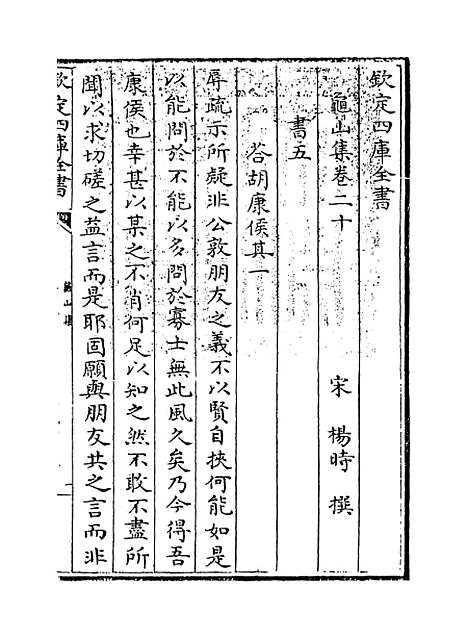 欽定四庫全書
龜山集卷二十
宋　楊時　撰
書五
答胡康侯其一
辱疏示所疑非公敦朋友之義不以賢自挾何能如是
以能問於不能以多問於寡士無此風久矣乃今得吾
康侯也幸甚以某之不肖何足以知之然不敢不盡所
聞以求切磋之益言而是耶固願與朋友共之言而非
欽定四庫全書
龜山集